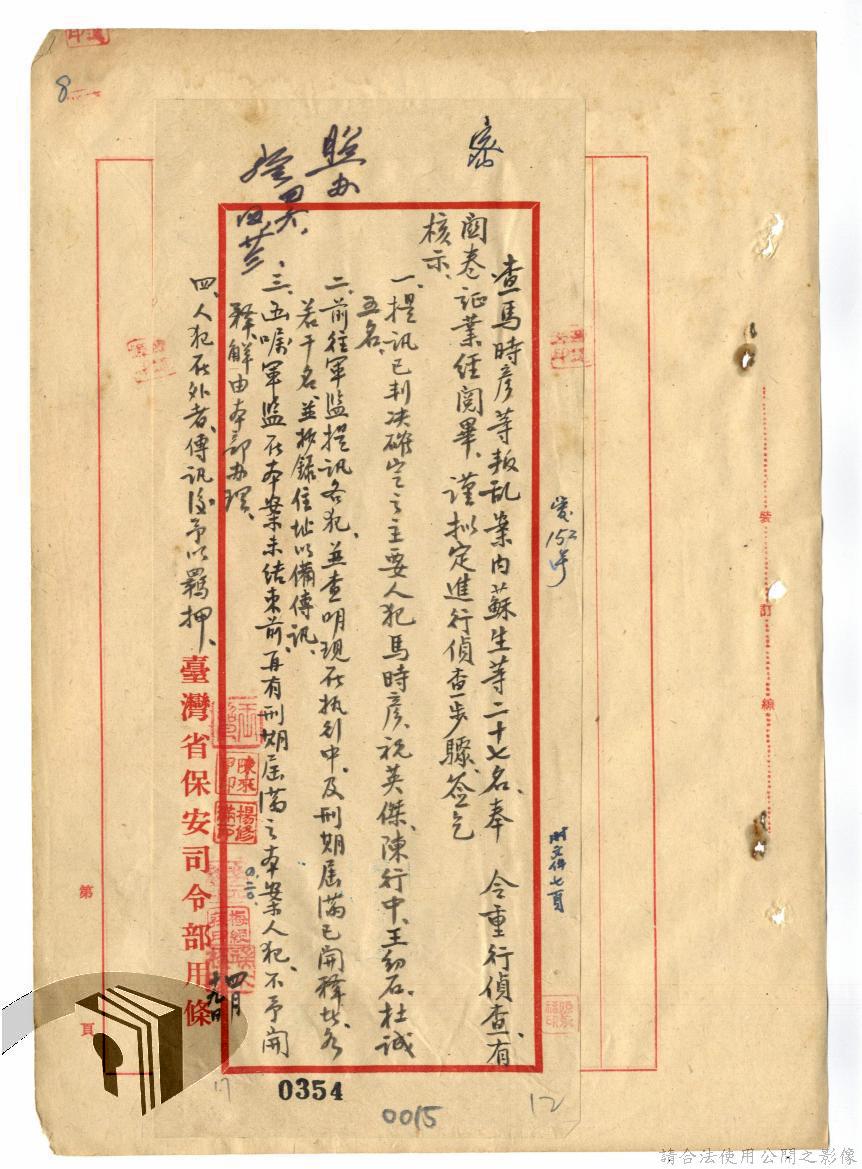 密
查馬時彥等叛乱案内蘇生等二十七名、奉 令重行偵查、有
関卷証業經閱畢、謹拟定進行偵查步驟、簽乞
核示、
一、提訊已判决確定之主要人犯馬時彥、祝英傑、陳行中、王幼石、杜誠
五名、
二、前往軍監提訊各犯、並查明現在执行中、及刑期屆滿已開釋者、各
若干名、並抄錄住址以備傳訊、
三、函囑軍監在本案未結束前、再有刑期屆滿之本案人犯、不予開
釋、解由本部办理、
四、人犯在外者、傳訊後予以羈押、
照办
四月
十九日
臺灣省保安司令部用條
附文件七頁
裝
訂
線
第
頁
8
17
0354
0015
12
請合法使用公開之影像